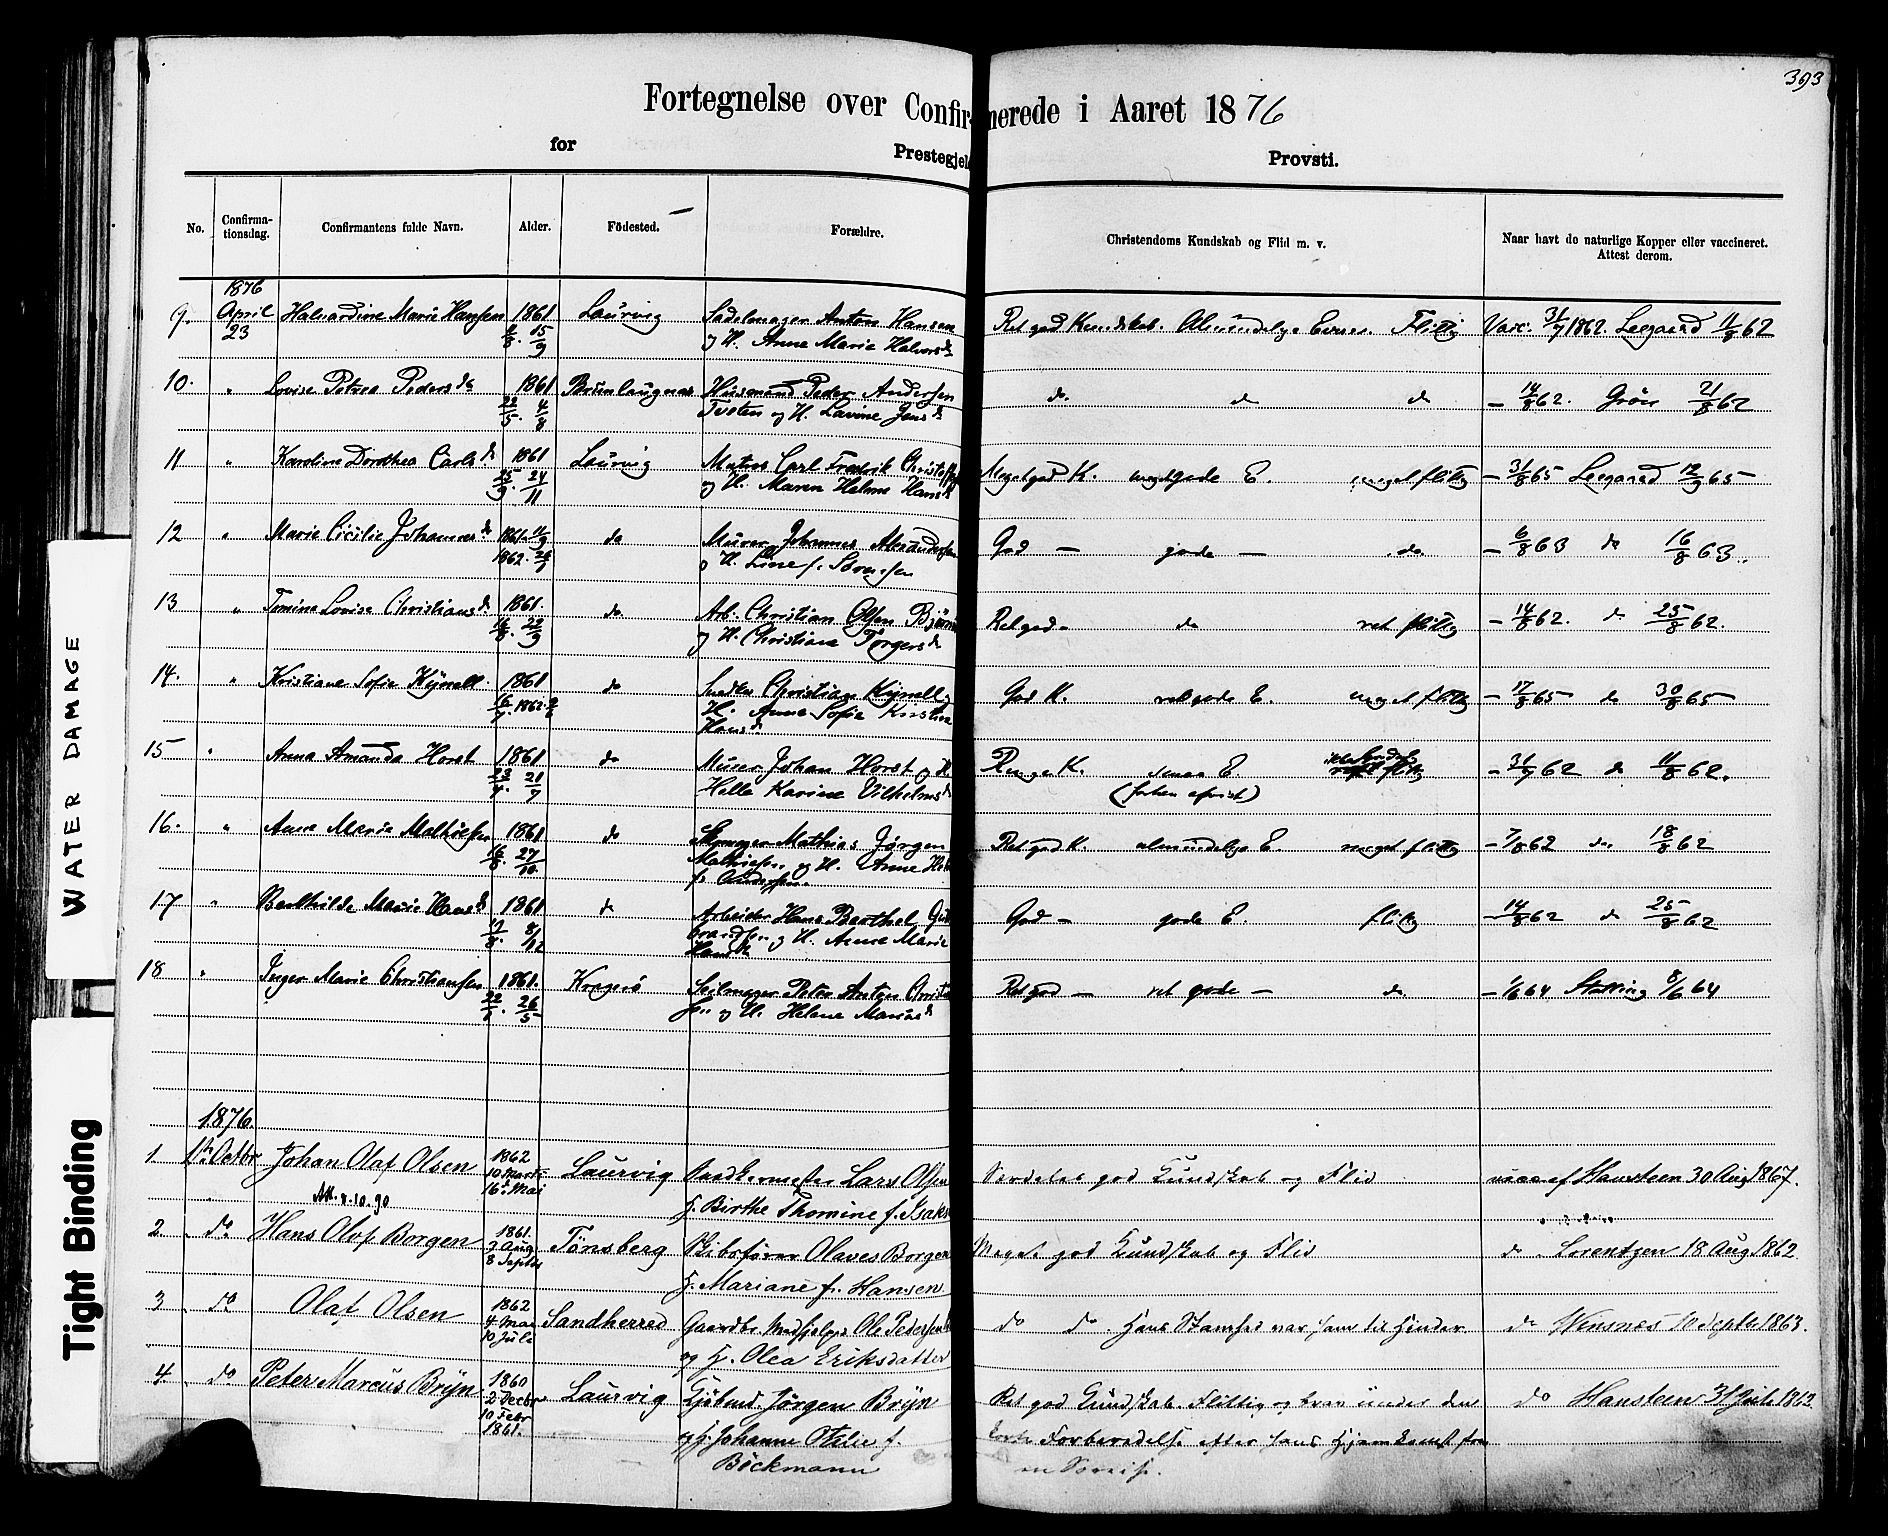 393
Fortegnelse over Confirmerede i Aaret 1876
for Prestegjeld Provsti.
No. Confirma-tionsdag. Confirmantens fulde Navn. Alder. Födested. Forældre. Christendoms Kundskab og Flid m. v. Naar havt de naturlige Kopper eller vaccineret. Attest derom.
1876
9. April 23 Halvardine Marie Hansen 1861 Laurvig Sadelmager Anton Hansen Ret god Kundskab. Almindelige Evner. Flittig Vacc. 31/7 1862. Leegaard 11/8 62
15/9 og H. Anne Marie Halvorsd
10. " Lovise Petrea Pedersd 1861 Brunlaugnæs Husmand Peder Andersen do do do – 14/8 62. Grön 21/8 62
22/5. 4/8 og H. Lavine Jensd
11 " Karoline Dorothea Carlsd 1861 Laurvig Matros Carl Fredrik Christoffers Meget god K. meget gode E. meget flittig – 31/8 65 Leegaard 12/9 65
25/9. 24/11 og H. Maren Helene Hansd
12 " Marie Cicilie Johannesd 1861 11/9 do Murer Johannes God – gode – do – 6/8 63 do 16/8 63.
1862. og H. Line f. Sørensen
13 " Tomine Lovise Christiansd 1861. do Arb. Christian Olsen Ret god – do ret flittig – 14/8 62. do 25/8 62.
22/9 og H. Christiane Torgersd
14. " Kristiane Sofie Kynell 1861 do Christian Kynell God K. ret gode E. meget flittig – 17/8 65 do 30/8 65
1862 H. Anne Sofie Kristine
Hansd
15 " Anna Amanda Horst 1861 do Murer Johan Horst og H. Ringe K. E. – 31/7 62 do 11/8 62.
21/7 Helle Karine Vilhelmsd
16. " Anne Marie Mathisen 1861 do Mathias Jørgen Ret god K. almindelige E. meget flittig – 7/8 62 do 18/8 62
16/8. 27/10 Mathiesen og H. Anne
f. Andersen.
17 " Berthilde Marie Hansd 1861 do Arbeider Hans Berthel God – gode E. flittig – 14/8 62 do 25/8 62
8/12 og H. Anne Marie
Hansd
18 " Inger Marie Christiansen 1861. Kragerö Seilmager Peter Anton Ret god – ret gode – do – 1/6 64 8/6 64
26/5 og H. Helene
1876.
1. 1ste Octbr Johan Olaf Olsen 1862 Laurvig Lars Olsen Serdeles god Kundskab og Flid vacc af Hansteen 30 Aug 1867.
10 Marts
16 Mai
Att. 4.10.90 H. Birthe Thomine f. Isaks
2 do Hans Olof Borgen 1861. Tönsberg Skibsförer Olaves Borgen Meget god Kundskab og Flid do Lorentzen 18 Aug 1862
3 Aug
8 Septbr
H. Mariane f. Hansen
3 do Olaf Olsen 1862 Sandherred Gaardbr. Ole Pedersen do do. Hans Stamhed var ham til Hinder do Wensnes 10 Septbr 1863.
4 Mai
10 Juli
og H. Olea Eriksdatter
4. do Peter Marcus Bryn 1860 Laurvig Kjöbmd. Jörgen Bryn Ret god Kundskab. Flittig og brav under den do Hansteen 31 Juli 1862
2 Decbr
10 Febr
1861. og H. Johanne Otilie f. korte Forberedelse efter hans Hjemkomst fra
Böckmann en Söreise.
WATER DAMAGE
Tight Binding